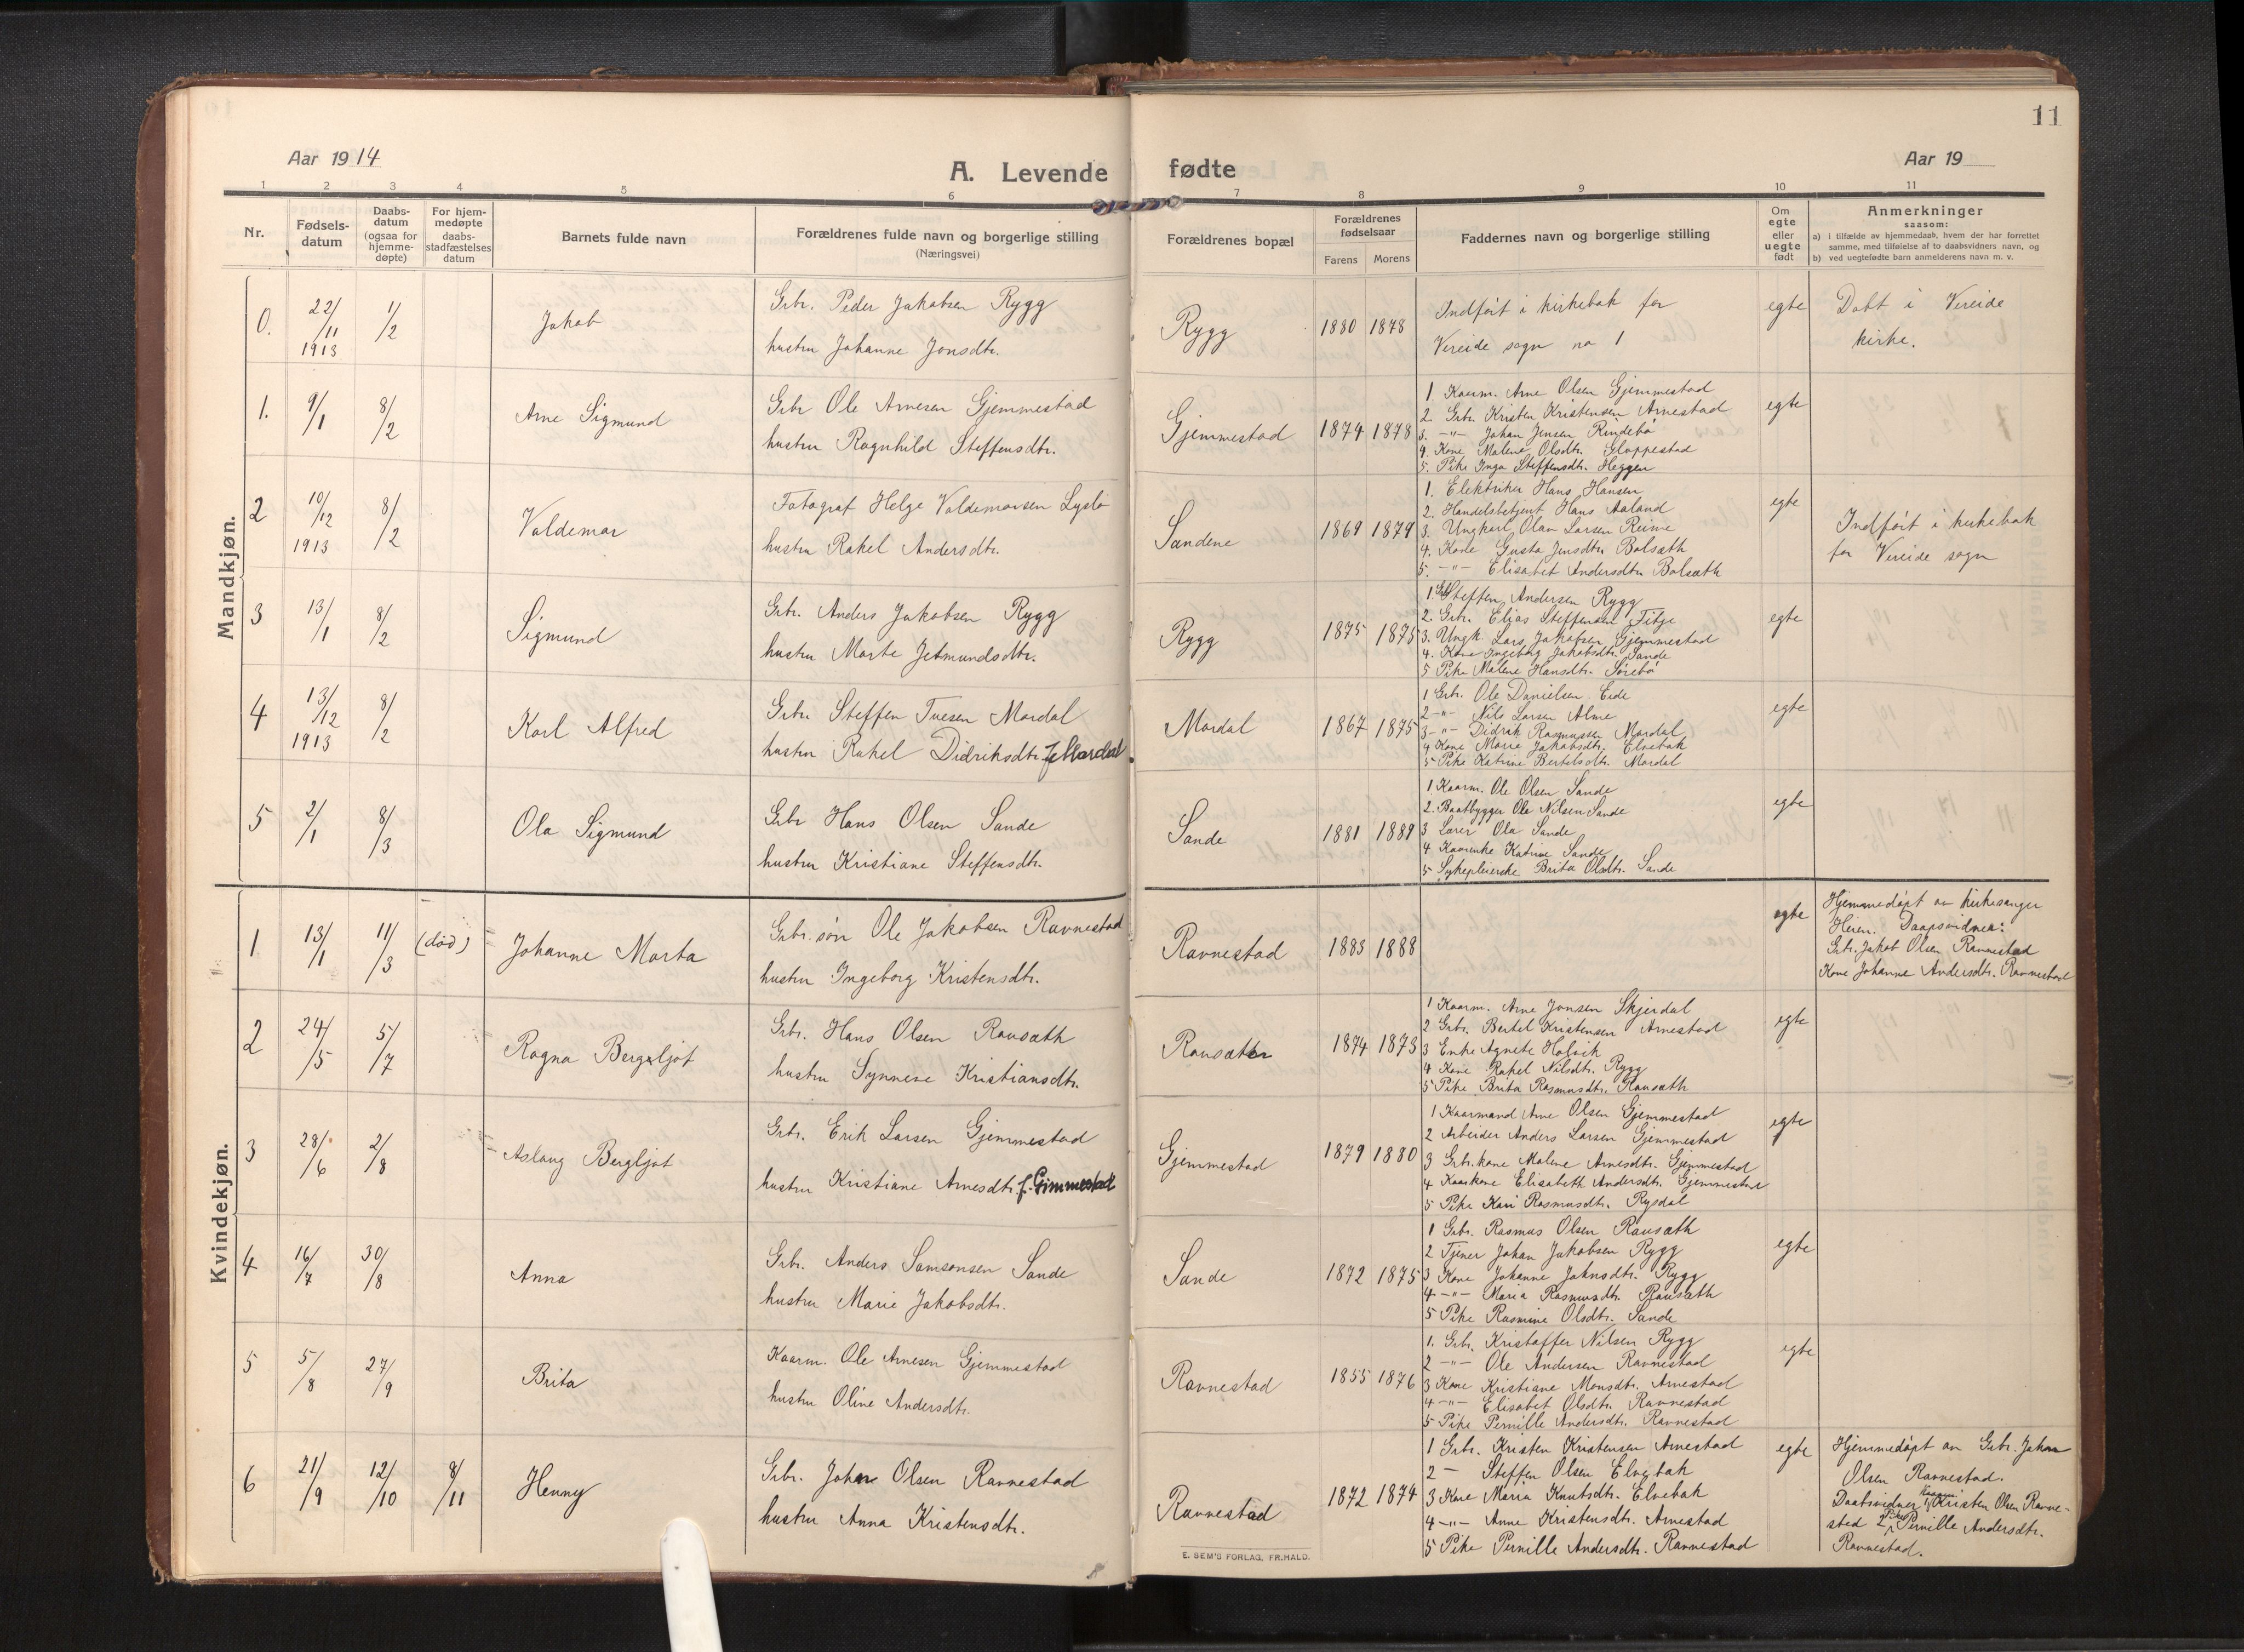 11
Aar 1914
A. Levende fødte
Aar 19
1 2 3 4 5 6 7 8 9 10 11
Nr.
Fødsels-
datum
Daabs-
datum
(ogsaa for
hjemme-
døpte)
For hjem-
medøpte
daabs-
stadfæstelses
datum
Barnets fulde navn
Forældrenes fulde navn og borgerlige stilling
(Næringsvei)
Forældrenes bopæl
Forældrenes
fødselsaar
Farens Morens
Faddernes navn og borgerlige stilling
Om
egte
eller
uegte
født
Anmerkninger
saasom:
a) i tilfælde av hjemmedaab, hvem der har forrettet
samme, med tilføielse af to daabsvidners navn, og
b) ved uegtefødte barn anmelderens navn m. v.
Mandkjøn.
0. 22/11 1913 1/2 Jakob
Grbr. Peder Jakobsen Rygg
hustru Johanne Jonsdtr.
Rygg 1880 1878
Indført i kirkebok for
Vereide sogn no 1
egte
Døbt i Vereide
kirke.
1. 9/1 8/2 Arne Sigmund
Grbr Ole Arnesen Gjemmestad
hustru Ragnhild Steffensdtr.
Gjemmestad 1874 1878
1. Kaarm. Arne Olsen Gjemmestad
2. Grbr. Kristen Kristensen Arnestad
3. -"- Johan Jensen Rindebø
4. Kone Malene Olsdtr. Gloppestad
5. Pike Inga Steffensdtr. Heggen
egte
2 10/12 1913 8/2 Valdemar
Fotograf Helge Valdemarsen Lyslo
hustru Rakel Andersdtr.
Sandene 1869 1879
1. Elektriker Hans Hansen
2. Handelsbetjent Hans Aaland
3. Ungkarl Olav Larsen Reime
4. Kone Gusta Jensdtr. Bolsæth
5. -"- Elisabet Andersdtr Bolsæth
egte
Indført i kirkebok
for Vereide sogn
3 13/1 8/2 Sigmund
Grbr. Anders Jakobsen Rygg
hustru Marte Jetmundsdtr.
Rygg 1875 1875
1. Steffen Andersen Rygg
2. Grbr. Elias Steffensen Fitje
3. Ungk. Lars Jakobsen Gjemmestad
4. Kone Ingeborg Jakobsdtr. Sande
5 Pike Malene Hansdtr. Sørebø
egte
4 13/12 1913 8/2 Karl Alfred
Grbr. Steffen Tuesen Mardal
hustru Rakel Didriksdtr. f. Mardal
Mardal 1867 1875
1 Grbr. Ole Danielsen Eide
2 -"- Nils Larsen Alme
3 -"- Didrik Rasmussen Mardal
4 Kone Maria Jakobsdtr. Elvebak
5 Pike Katrine Bertelsdtr. Mardal
egte
5 2/1 8/3 Ola Sigmund
Grbr Hans Olsen Sande
hustru Kristiane Steffensdtr.
Sande 1881 1889
1 Kaarm. Ole Olsen Sande
2. Baatbygger Ole Nilsen Sande
3 Lærer Ola Sande
4 Kaarenke Katrine Sande
5 Sykepleierske Brita Olsdtr. Sande
egte
Kvindekjøn.
1 13/1 11/3 (død) Johanne Marta
Grbr. søn Ole Jakobsen Ravnestad
hustru Ingeborg Kristensdtr.
Ravnestad 1883 1888
egte
Hjemmedøpt av kirkesanger
Daapsvidner:
Grbr. Jakob Olsen Ravnestad
Kone Johanne Andersdtr. Ravnestad
2 24/5 5/7 Ragna Bergljot
Grbr. Hans Olsen Rausæth
hustru Synneve Kristiansdtr.
Rausæter 1874 1873
1 Kaarm. Arne Jonsen Skjerdal
2 Grbr. Bertel Kristensen Arnestad
3 Enke Agnete Holvik
4 Kone Rakel Nilsdtr. Rygg
5 Pike Brita Rasmusdtr. Rausæth
egte
3 28/6 2/8 Aslaug Bergljot
Grbr. Erik Larsen Gjemmestad
hustru Kristiane Arnesdtr. f. Gimmestad
Gjemmestad 1879 1880
1 Kaarmand Arne Olsen Gjemmestad
2 Arbeider Anders Larsen Gjemmestad
3 Grbr.kone Malene Arnesdtr. Gjemmestad
4 Kaarkone Elisabeth Andersdtr. Gjemmestad
5 Pike Kari Rasmusdtr. Rysdal
egte
4 16/7 30/8 Anna
Grbr. Anders Samsonsen Sande
hustru Marie Jakobsdtr.
Sande 1872 1875
1 Grbr. Rasmus Olsen Rausæth
2 Tjener Johan Jakobsen Rygg
3 Kone Johanne Johnsdtr. Rygg
4 -"- Maria Rasmusdtr. Rausæth
5 Pike Rasmine Olsdtr. Sande
egte
5 5/8 27/9 Brita
Kaarm. Ole Arnesen Gjemmestad
hustru Oline Andersdtr.
Ravnestad 1855 1876
1. Grbr. Kristoffer Nilsen Rygg
2 -"- Ole Andersen Ravnestad
3 Kone Kristiane Monsdtr. Arnestad
4 -"- Elisabet Olsdtr. Ravnestad
5 Pike Pernille Andersdtr. Ravnestad
egte
6 21/9 12/10 8/11 Henny
Grbr. Johan Olsen Ravnestad
hustru Anna Kristensdtr.
Ravnestad 1872 1874
1 Grbr. Kristen Kristensen Arnestad
2 - Steffen Olsen Elvebak
3 Kone Maria Knutsdtr. Elvebak
4 -"- Anne Kristensdtr. Arnestad
5 Pike Pernille Andersdtr. Ravnestad
egte
Hjemmedøpt av Grbr. Johan
Olsen Ravnestad.
Daabsvidner 1) Kaarm. Kristen Olsen Ravne-
stad 2. Pike Pernille Andersdtr.
Ravnestad.
E. SEM'S FORLAG, FR.HALD.